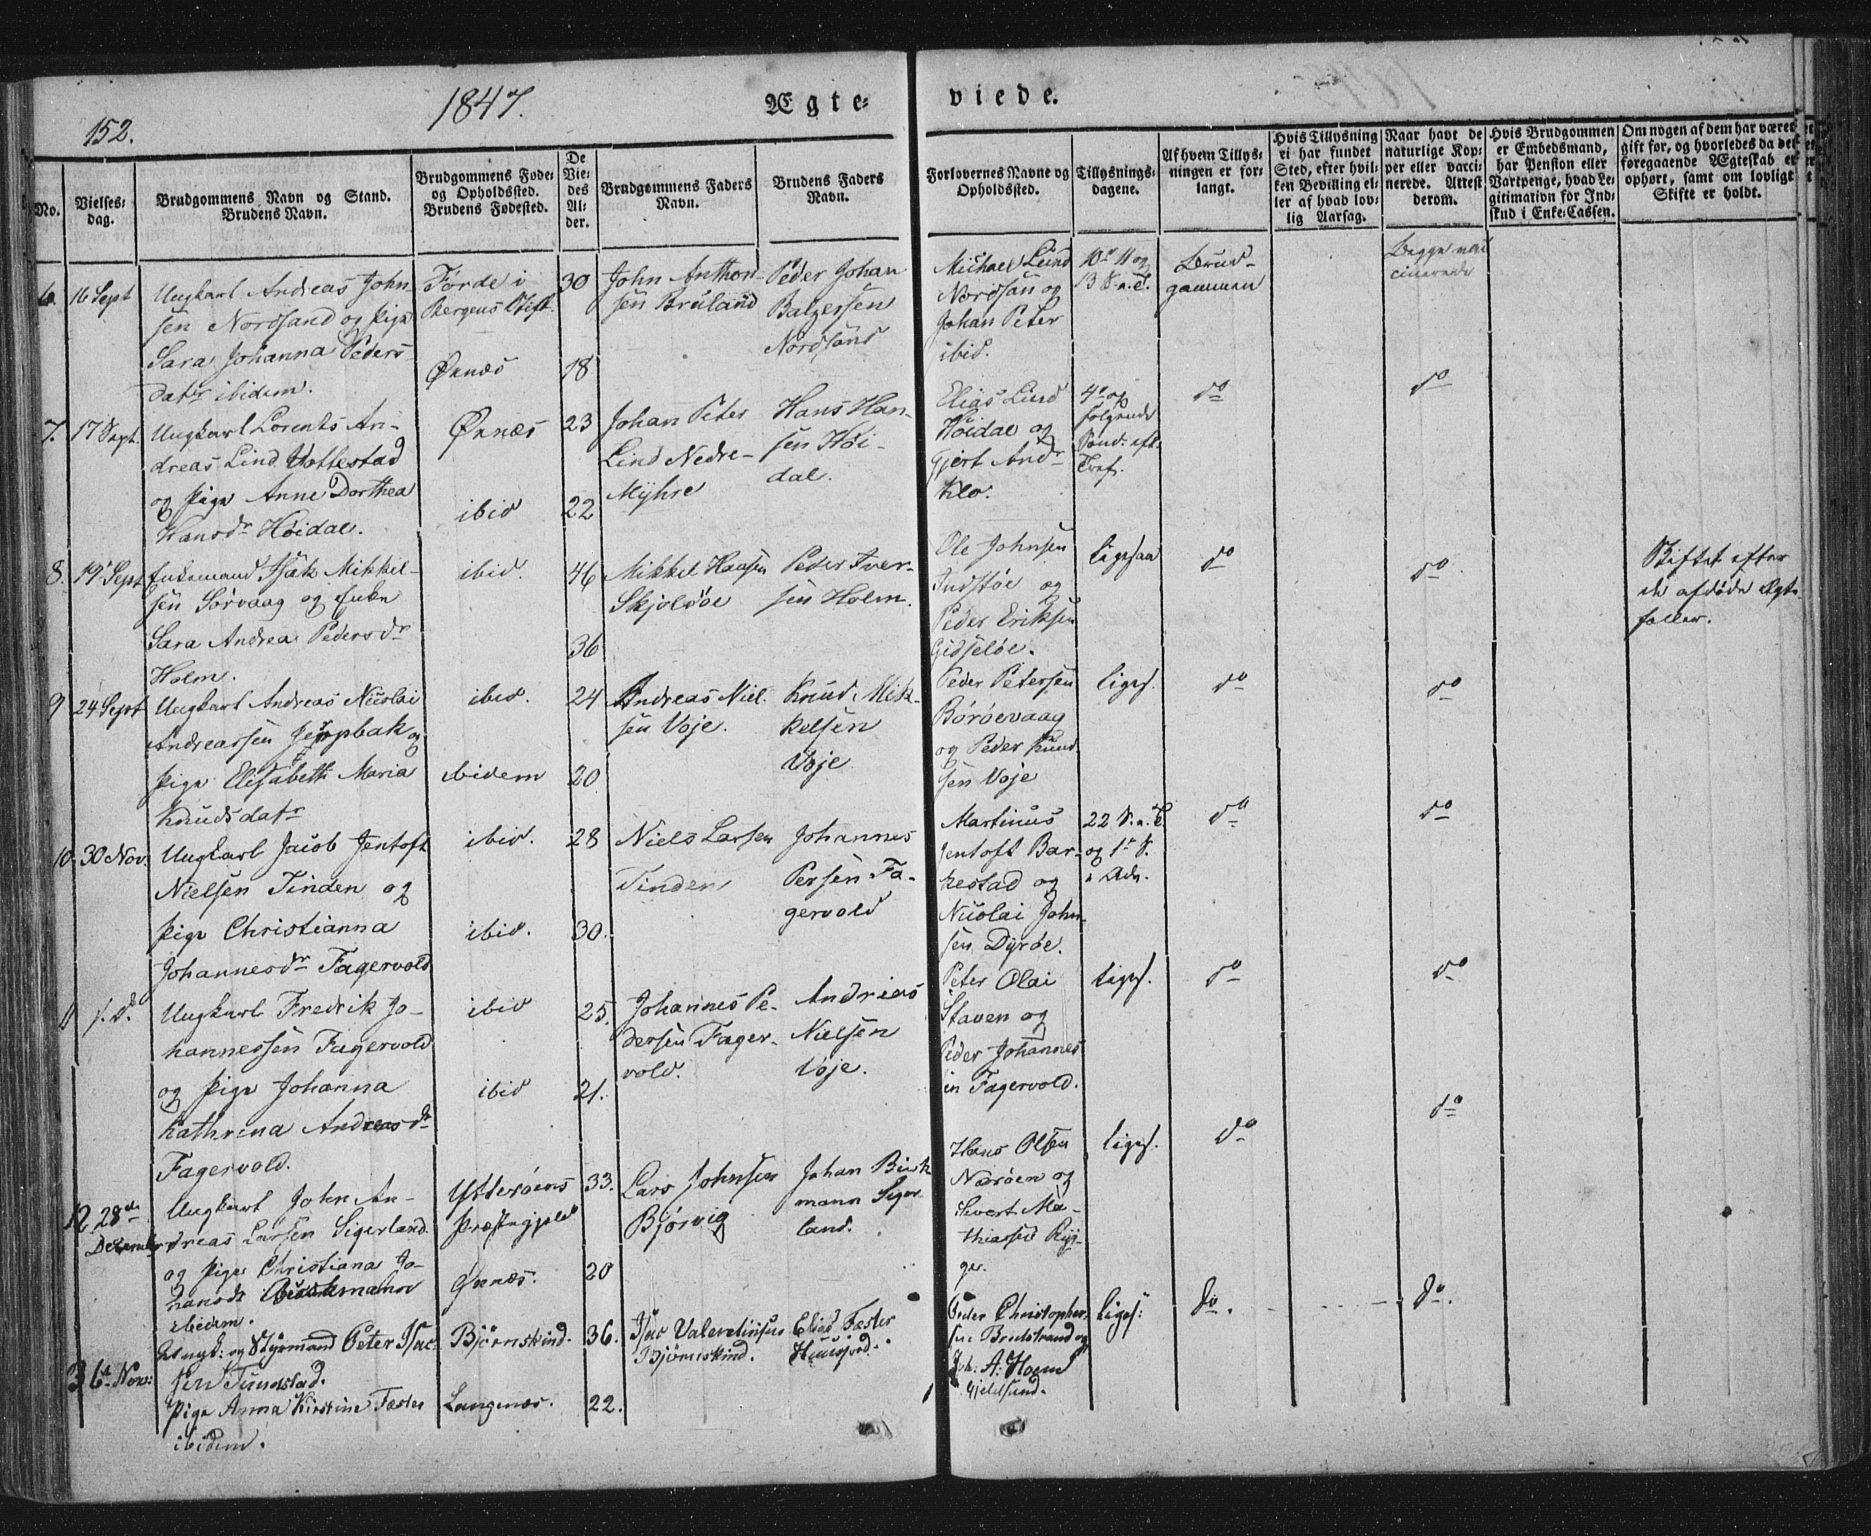 152.
1847.
Ægte=
viede.
No.
Vielses=
dag.
Brudgommens Navn og Stand.
Brudens Navn.
Brudgommens Føde=
og Opholdssted.
Brudens Fødested.
De
Vie=
des
Al=
der.
Brudgommens Faders
Navn.
Brudens Faders
Navn.
Forlovernes Navne og
Opholdssted.
Tillysnings=
dagene.
Af hvem Tillys=
ningen er for=
langt.
Hvis Tillysning
ei har fundet
Sted, efter hvil=
ken Bevilling el=
ler af hvad lov=
lig Aarsag.
Naar havt de
naturlige Kop=
per eller vacci=
nerede. Attest
derom.
Hvis Brudgommen
er Embedsmand,
har Pension eller
Vartpenge, hvad Le=
gitimation for Ind=
skud i Enke=Cassen.
Om nogen af dem har været
gift før, og hvorledes da det
foregaaende Ægteskab er
ophørt, samt om lovligt
Skifte er holdt.
6. 16 Sept
Ungkarl Andreas John-
sen Nordsand og Pige
Sara Johanna Peders
datr ibidem.
Förde i
Bergens Stift.
Öxnæs
30
18
John Anthon-
sen Bruland
Peder Johan
Balzersen
Nordsand
Michael Lund
Nordsan og
Johan Peter
ibid.
10de 11 og
13 S. a. T.
Brud-
gommen
Begge vac
cinerede
7. 17 Sept.
Ungkarl Lorents An-
dreas Lind Vottestad
og Pige Anne Dorthea
Hansdr Höidal.
Öxnæs
ibid
23
22
Johan Peter
Lind Nedre-
Myhre
Hans Han-
sen Höi-
dal.
Elias Lind
Höidal og
Gjert Andr
Klo.
4de og
følgende
Sønd. eft.
Tref.
do
do
8. 19 Sept
Enkemand Isak Mikkel-
sen Sörvaag og Enke
Sara Andrea Pedersdr
Holm.
ibid.
46
36
Mikkel Hansen
Skjolsöe
Peder Iver-
sen Holm.
Ole Johnsen
Indstøe og
Peder Eriksen
Gidselöe.
Ligesaa
do
do
Skiftet efter
de afdöde Ægte
fæller.
9 24 Sept
Ungkarl Andreas Nicolai
Andreassen Jeppbak og
Pige Elisabeth Maria
Knudsdatr
ibid.
ibidem
24
20
Andreas Niel-
sen Voje.
Knud Mik-
kelsen
Voje
Peder Petersen
Böröevaag
og Peder Knud
sen Voje
Liges.
do
do
10. 30 Nov.
Ungkarl Jacob Jentoft
Nielsen Tinden og
Pige Christianna
Johannesdr Fagervold
ibid.
ibid.
28
30.
Niels Larsen
Tinden
Johannes
Persen Fa-
gervold
Martinus
Jentoft Bar-
kestad og
Nicolai John-
sen Dyröe.
22 S. a. T.
og 1te S.
i Adv.
do
do
11 s. d.
Ungkarl Fredrik Jo-
hannessen Fagervold
og Pige Johanna
Kathrina Andreasdr
Fagervold.
ibid
ibid
25.
21.
Johannes Pe-
dersen Fager-
vold.
Andreas
Nielsen
Voje.
Peter Olai
Staven og
Peder Johannes
sen Fagervold.
Liges.
do
do
12 28de
December
Ungkarl John An-
dreas Larsen Sigerland
og Pige Christiana Jo-
hansdr Birkmann
ibidem.
Ytteröens
Præstegjeld
Öxnæs.
33.
20
Lars Johnsen
Björvig
Johan Birk
mann Siger-
land.
Hans Olsen
Naröen og
Sivert Ma-
thiassen Ryg-
ge.
Liges.
do
do
3 6te Nov:
Ungk: og Styrmand Peter Isac-
sen Tunstad.
Pige Anna Kirstine Fæster
ibidem.
Björnskind.
Langenæs.
36.
22.
Isac Valentinsen
Björnskind.
Elias Fæster
Huusjord.
Peder Christopher-
sen Bredstrand og
Joh. A. Hoem
Gjeldsund.
Liges:
do.
do.